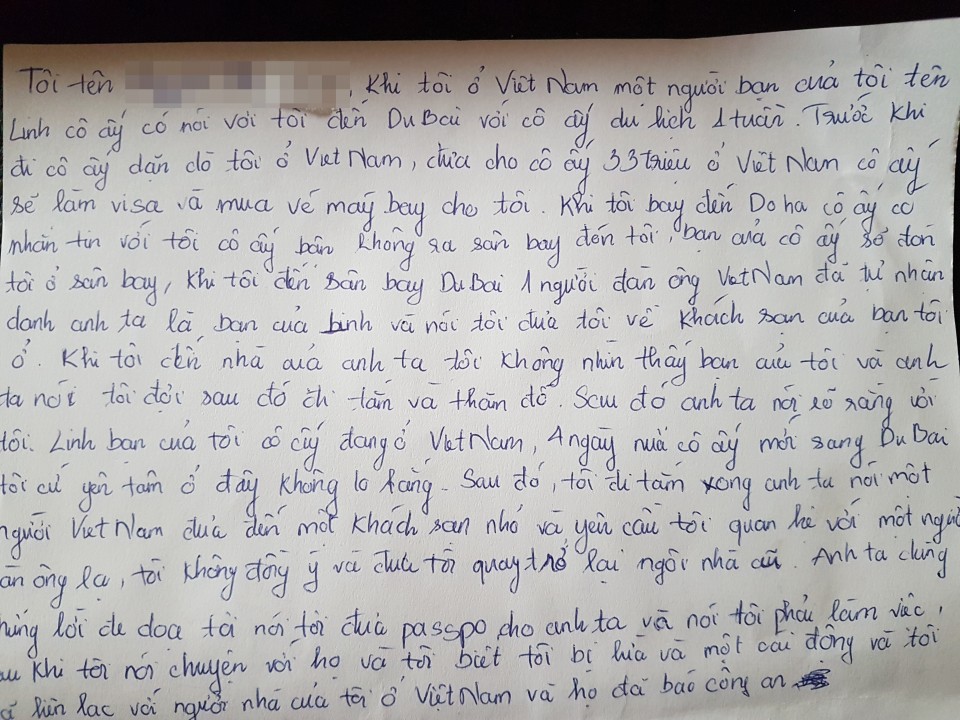 Tôi tên , Khi tôi ở Việt Nam một người bạn của tôi tên
Linh cô ấy có nói với tôi đến DuBai với cô ấy du lịch 1 tuần. Trước khi
đi cô ấy dặn dò tôi ở Việt Nam, đưa cho cô ấy 33 triệu ở Việt Nam cô ấy
sẽ làm visa và mua vé máy bay cho tôi. Khi tôi bay đến Doha cô ấy có
nhắn tin với tôi cô ấy bận không ra sân bay đón tôi, bạn của cô ấy sẽ đón
tôi ở sân bay, khi tôi đến sân bay DuBai 1 người đàn ông Việt Nam đã tự nhận
danh anh ta là bạn của Linh và nói tôi đưa tôi về khách sạn của bạn tôi
ở. Khi tôi đến nhà của anh ta tôi không nhìn thấy bạn của tôi và anh
ta nói tôi đợi sau đó đi tắm và thăn đồ. Sau đó anh ta nói rõ ràng với
tôi. Linh bạn của tôi cô ấy đang ở Việt Nam, 4 ngày nữa cô ấy mới sang DuBai
tôi cứ yên tâm ở đây không lo lắng. Sau đó, tôi đi tắm xong anh ta nói một
người Việt Nam đưa đến một khách sạn nhỏ và yêu cầu tôi quan hệ với một người
àn ông lạ, tôi không đồng ý và đưa tôi quay trở lại ngôi nhà cũ. Anh ta dùng
hững lời đe doạ tôi nói tôi đưa passpo cho anh ta và nói tôi phải làm việc,
au khi tôi nói chuyện với họ và tôi biết tôi bị lừa và một cái động và tôi
ã liên lạc với người nhà của tôi ở Việt Nam và họ đã báo công an